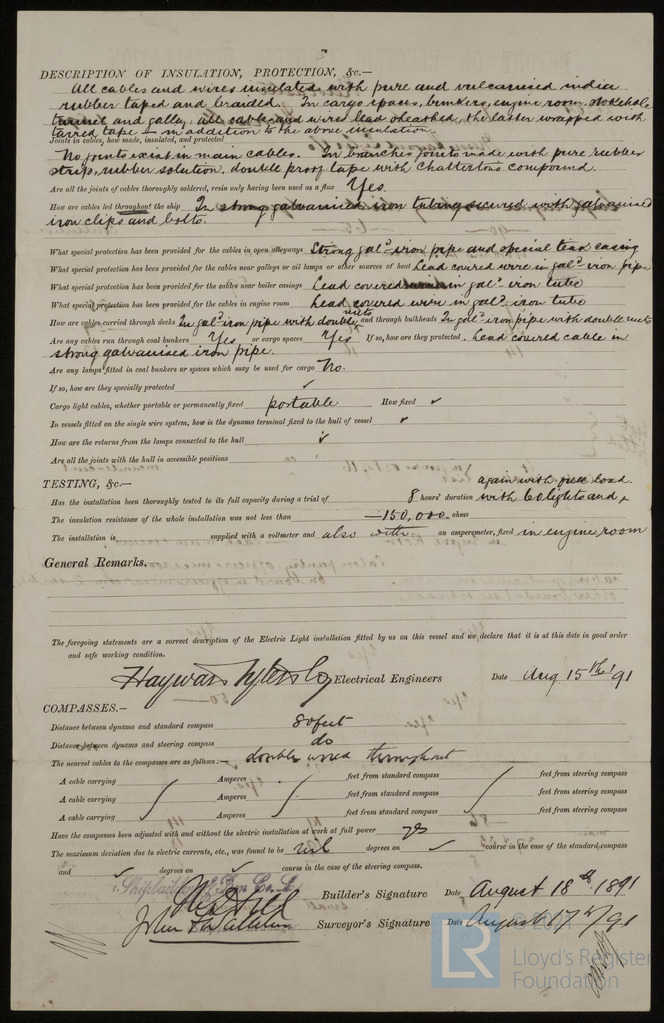 DESCRIPTION OF INSULATION, PROTECTION, &c.—
All cables and wires insulated with pure and vulcanised india
rubber taped and braided. In cargo spaces, bunkers, engine room, stokehole
tunnel and galley, all cables and wires lead sheathed, the latter wrapped with
tarred tape — in addition to the above insulation.
Joints in cables, how made, insulated, and protected
No joints exist in main cables. In branches joints made with pure rubber
strip, rubber solution, double proof tape with Chattertons compound.
Are all the joints of cables thoroughly soldered, resin only having been used as a flux Yes.
How are cables led throughout the ship In strong galvanised iron tubing secured with galvanised
iron clips and bolts.
What special protection has been provided for the cables in open alleyways Strong galᵈ iron pipe and special teak casing
What special protection has been provided for the cables near galleys or oil lamps or other sources of heat Lead covered wire in galᵈ iron pipe
What special protection has been provided for the cables near boiler casings Lead covered in galᵈ iron tube
What special protection has been provided for the cables in engine room Lead covered wire in galᵈ iron tube
How are cables carried through decks In galᵈ iron pipe with double nuts and through bulkheads In galᵈ iron pipe with double nuts
Are any cables run through coal bunkers Yes or cargo spaces Yes If so, how are they protected. Lead covered cable in
strong galvanised iron pipe.
Are any lamps fitted in coal bunkers or spaces which may be used for cargo No.
If so, how are they specially protected ✓
Cargo light cables, whether portable or permanently fixed portable How fixed ✓
In vessels fitted on the single wire system, how is the dynamo terminal fixed to the hull of vessel ✓
How are the returns from the lamps connected to the hull ✓
Are all the joints with the hull in accessible positions
TESTING, &c.— again with full load.
Has the installation been thoroughly tested to its full capacity during a trial of 8 hours' duration with 60 lights and
The insulation resistance of the whole installation was not less than — 150,000 ohms
The installation is supplied with a voltmeter and also with an amperemeter, fixed in engine room
General Remarks.
The foregoing statements are a correct description of the Electric Light installation fitted by us on this vessel and we declare that it is at this date in good order
and safe working condition.
Hayward Tyler & Co Electrical Engineers Date Aug 15th 91
COMPASSES.—
Distance between dynamo and standard compass 80 feet
Distance between dynamo and steering compass do
The nearest cables to the compasses are as follows:— double wired throughout
A cable carrying Amperes feet from standard compass feet from steering compass
A cable carrying Amperes feet from standard compass feet from steering compass
A cable carrying Amperes feet from standard compass feet from steering compass
Have the compasses been adjusted with and without the electric installation at work at full power yes
The maximum deviation due to electric currents, etc., was found to be nil degrees on ✓ course in the case of the standard compass
and ✓ degrees on ✓ course in the case of the steering compass.
Builder's Signature Date August 18th 1891
John Surveyor's Signature Date August 17th/91
LR
Lloyd's Register
Foundation